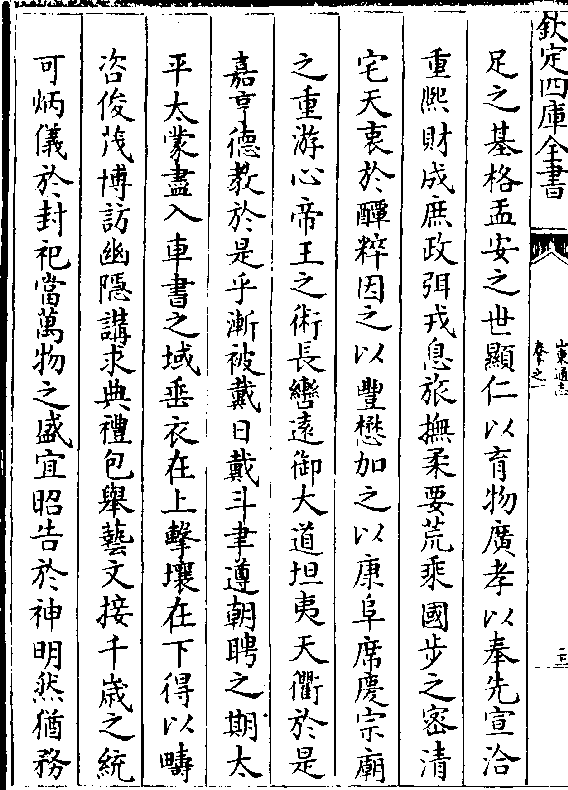 欽定四庫全書
足之基格盂安之世顯仁以育物廣孝以奉先宣洽
重熈財成庶政弭戎息旅撫柔要荒乘國步之宻清
宅天衷於醰粹因之以豐懋加之以康阜席慶宗廟
之重游心帝王之術長轡逺御大道坦夷天衢於是
嘉亨德教於是乎漸被戴日戴斗聿遵朝聘之期太
平太蒙盡入車書之域垂衣在上擊壤在下得以疇
咨俊茂博訪幽隠講求典禮包舉藝文接千歳之統
可炳儀於封祀當萬物之盛宜昭告於神明然猶務